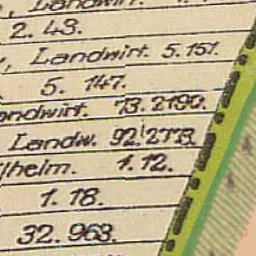 , Landwirt.
2. 43.
, Landwirt. 5.151.
5. 147.
andwirt. 73.2190.
Landw. 92.2173.
ilhelm. 1.12.
1. 18.
32. 963.